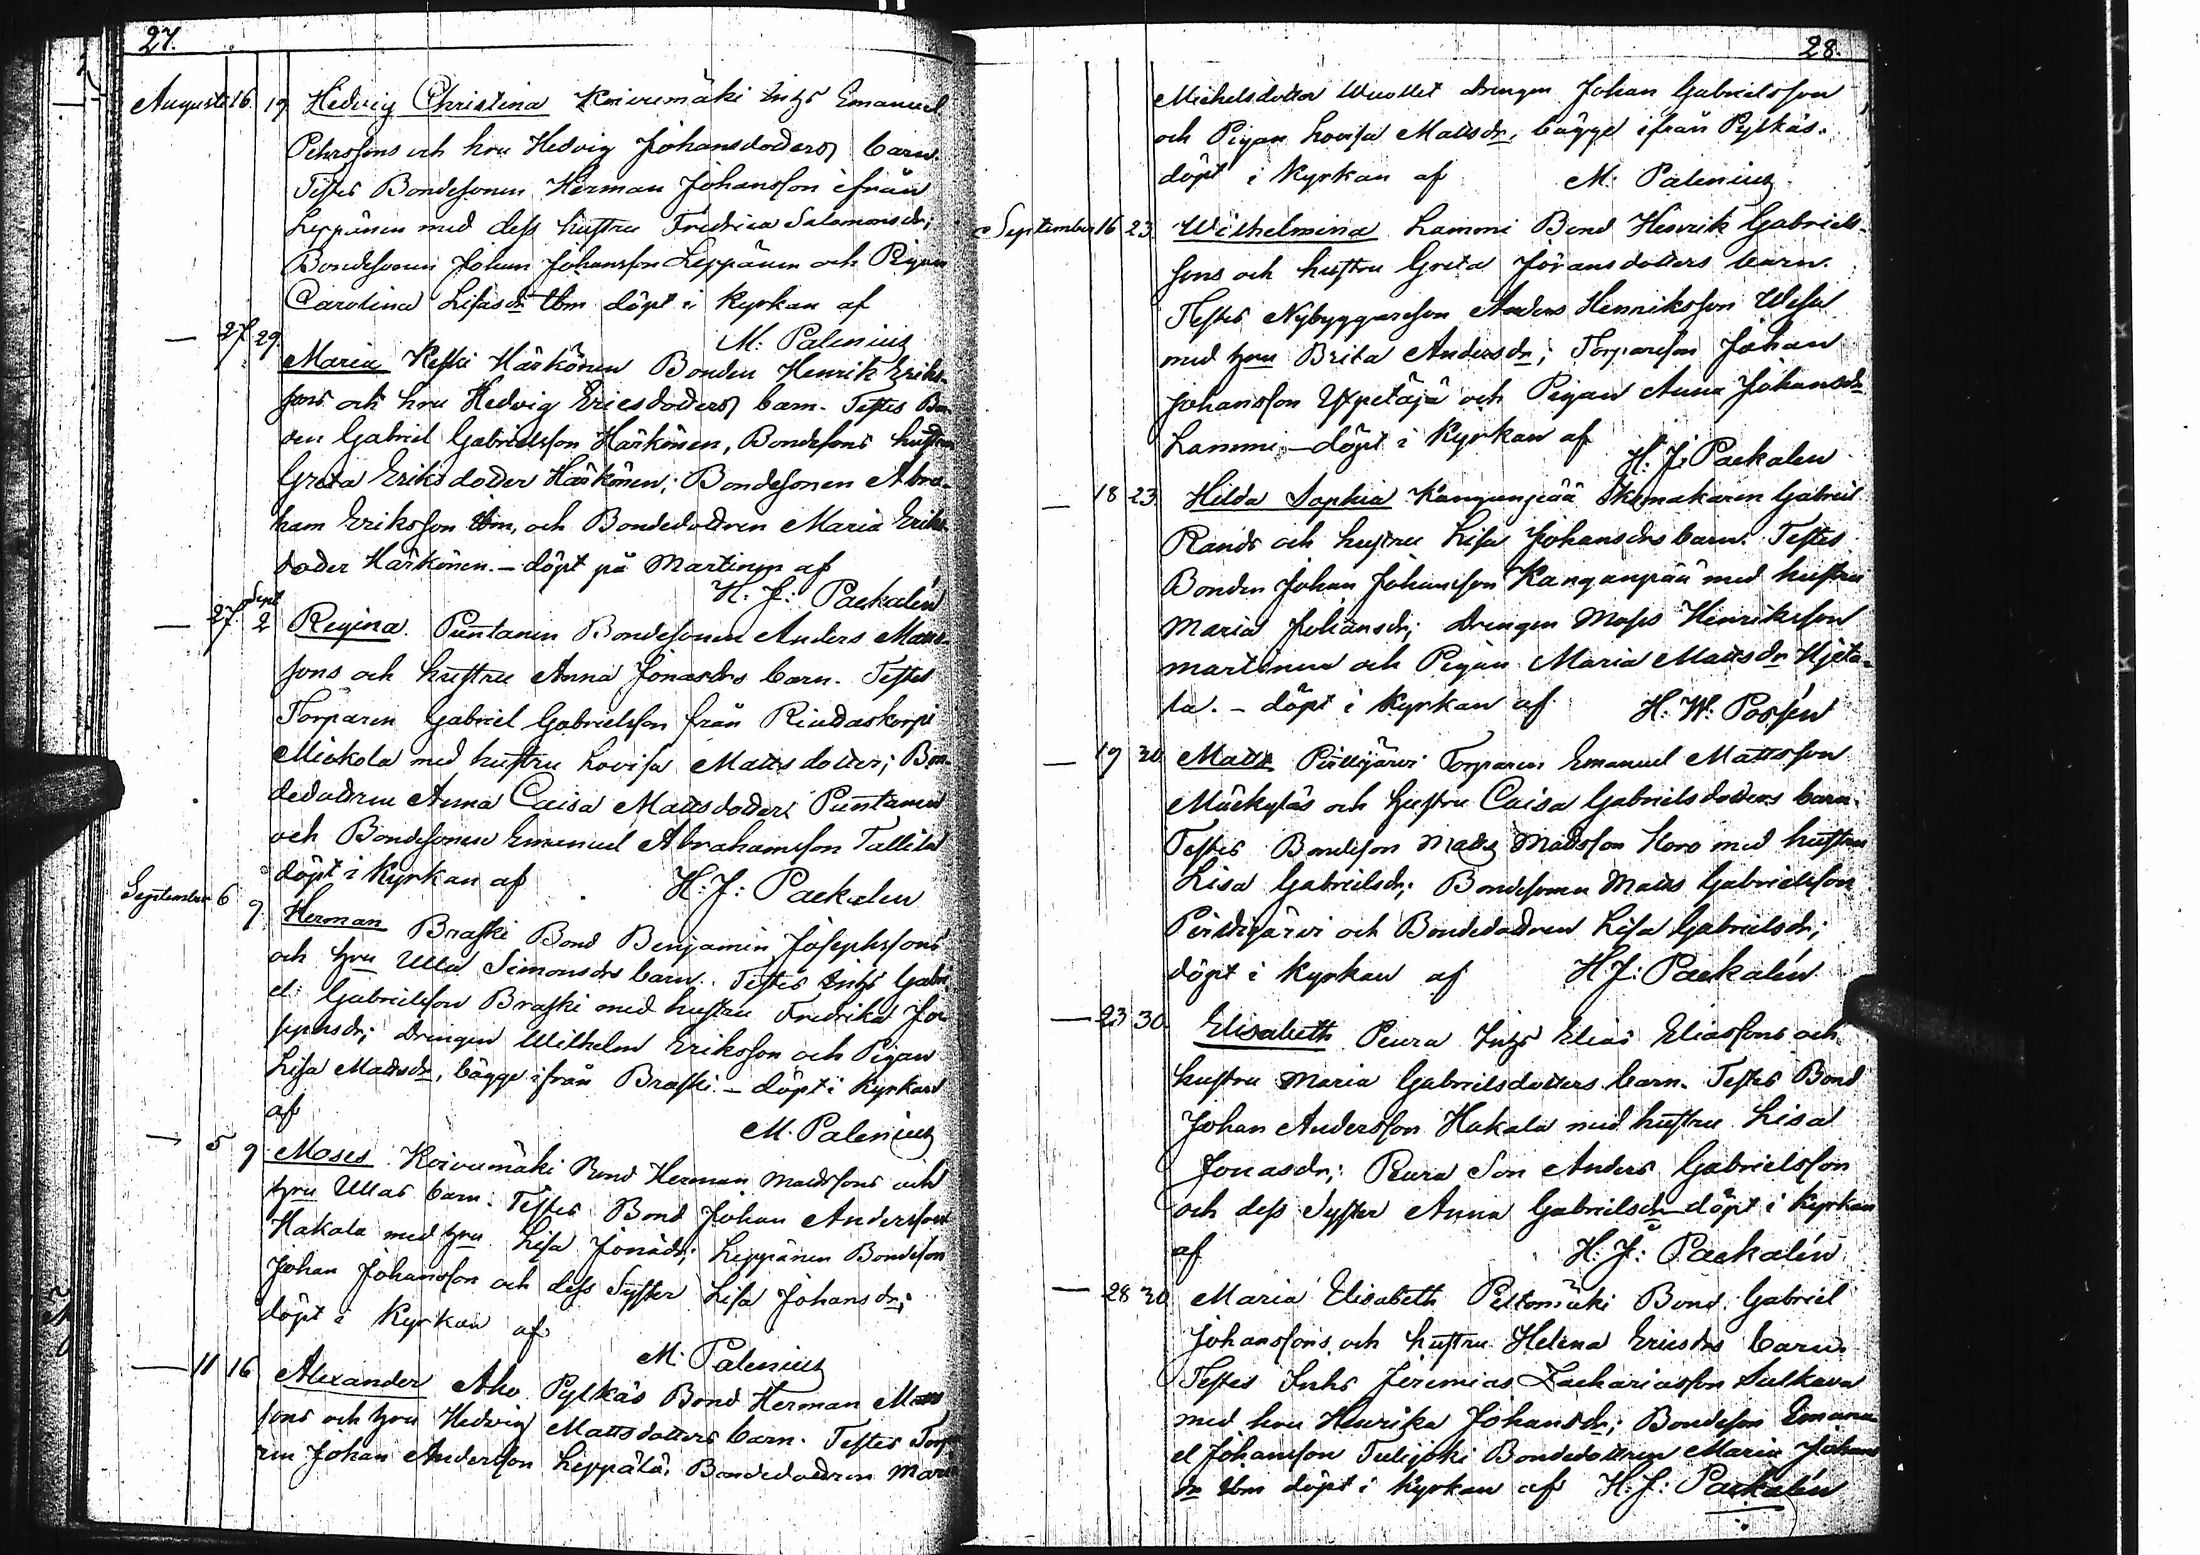 27.
Augusti 16. 19 Hedvig Christina Koivumäki Inhs Emanuel
Pehrssons och hru Hedvig Johansdotters barn.
Testes Bondesonen Herman Johansson ifrån
Leppänen med dess hustru Fredrica Salomonsdr;
Bondesonen Johan Johansson Leppänen och Pigan
Carolina Lisasdr tbm döpt i kyrkan af
M: Palenius
— 27 29 Maria Keski Härkönen Bonden Henrik Eriks-
sons och hru Hedvig Ericsdotters barn. Testes Bon-
den Gabriel Gabrielsson Härkönen, Bondesons hustru
Greta Eriksdotter Härkönen; Bondesonen Abra-
ham Eriksson tbm, och Bondedottren Maria Eriks-
dotter Härkönen. — döpt på Martinen af
H. J: Packalén
— 27. Sept 2 Regina. Puntanen Bondesonen Anders Matts-
sons och hustru Anna Jonasdrs barn. Testes
Torparen Gabriel Gabrielsson från Rindaskorpi
Mickola med hustru Lovisa Mattsdotter; Bon-
dedottren Anna Caisa Mattsdotter Puntanen
och Bondesonen Emanuel Abrahamsson Tallila
döpt i kyrkan af H: J: Packalen
September 6 9 Herman Braski Bond Benjamin Josephssons
och hru Ulla Simonsdrs barn. Testes Inhs Gabri-
el Gabrielsson Braski med hustru Fredrika Jo-
sephsdr; Drengen Wilhelm Eriksson och Pigan
Lisa Mattsdr, bägge ifrån Braski. — döpt i kyrkan
af M. Palenius
— 5 9 Moses Koivumäki Bond Herman Mattssons och
hru Ullas barn. Testes Bond Johan Andersson
Hakala med hru Lisa Jonasdr; Leppänen Bondeson
Johan Johansson och dess Syster Lisa Johansdr;
döpt i Kyrkan af
M. Palenius
— 11 16 Alexander Aho Pylkäs Bond Herman Matts
sons och hru Hedvig Mattsdotters barn. Testes Torpa
ren Johan Andersson Leppälä, Bondedottren Maria
28.
Michelsdotter Wuollet drengen Johan Gabrielsson
och Pigan Lovisa Mattsdr, bägge ifrån Pylkäs.
döpt i Kyrkan af M. Palenius
September 16 23 Wilhelmina Lammi Bond Henrik Gabriels-
sons och hustru Greta Jöransdotters barn.
Testes Nybyggareson Anders Henriksson Wesa
med hru Brita Andersdr; Torpareson Johan
Johansson Yxpetäjä och Pigan Anna Johansdr
Lammi, — döpt i Kyrkan af H. J: Packalen
— 18 23. Hilda Sophia Kanganpää Skomakaren Gabriel
Rands och hustru Lisa Johansdrs barn. Testes
Bonden Johan Johansson Kanganpää med hustru
Maria Johansdr; Drengen Moses Henriksson
Martinen och Pigan Maria Mattsdr Hjeta-
la. — döpt i kyrkan af H: W: Possén
— 19 30 Matts Pirttijärvi Torparen Emanuel Mattsson
Mäckyläs och hustru Caisa Gabrielsdotters barn.
Testes Bondeson Matts Mattsson Horo med hustru
Lisa Gabrielsdr; Bondesonen Matts Gabrielsson
Pirttijärvi och Bondedottren Lisa Gabrielsdr;
döpt i kyrkan af H J: Packalén
— 23 30. Elisabeth Peura Inhs Elias Eliassons och
hustru Maria Gabrielsdotters barn. Testes Bond
Johan Andersson Hakala med hustru Lisa
Jonasdr; Peura Son Anders Gabrielsson
och dess Syster Anna Gabrielsdr döpt i kyrkan
af H: J: Packalén
— 28 30 Maria Elisabeth Peltomäki Bond Gabriel
Johanssons och hustru Helena Ericsdrs barn.
Testes Inhs Jeremias Zachariasson Sulkava
med hru Henrika Johansdr; Bondeson Emanu-
el Johansson Tulijoki Bondedottren Maria Johans
dr tbm döpt i kyrkan af H: J: Packalén